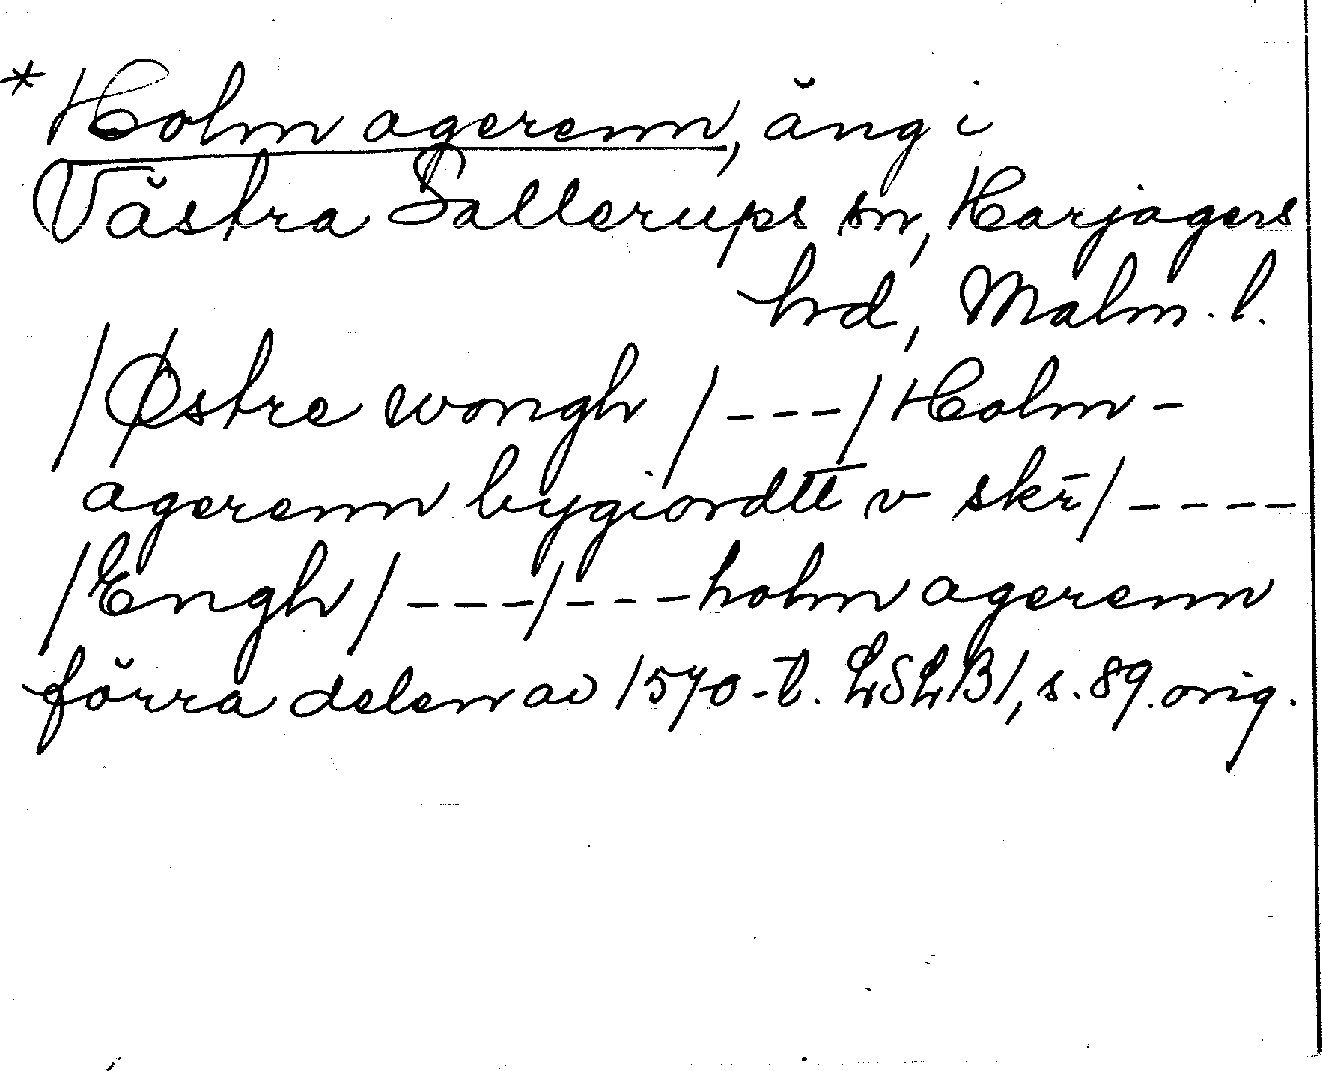 *Holm agerenn, äng i
Västra Sallerups sn, Harjagers
hrd, Malm. l.
/Østre wongh /---/Holm-
agerenn bygiordtt v skr̄/----
/Engh/---/---holm agerenn
förra delen av 1570-t. LSLB1, s. 89. orig.